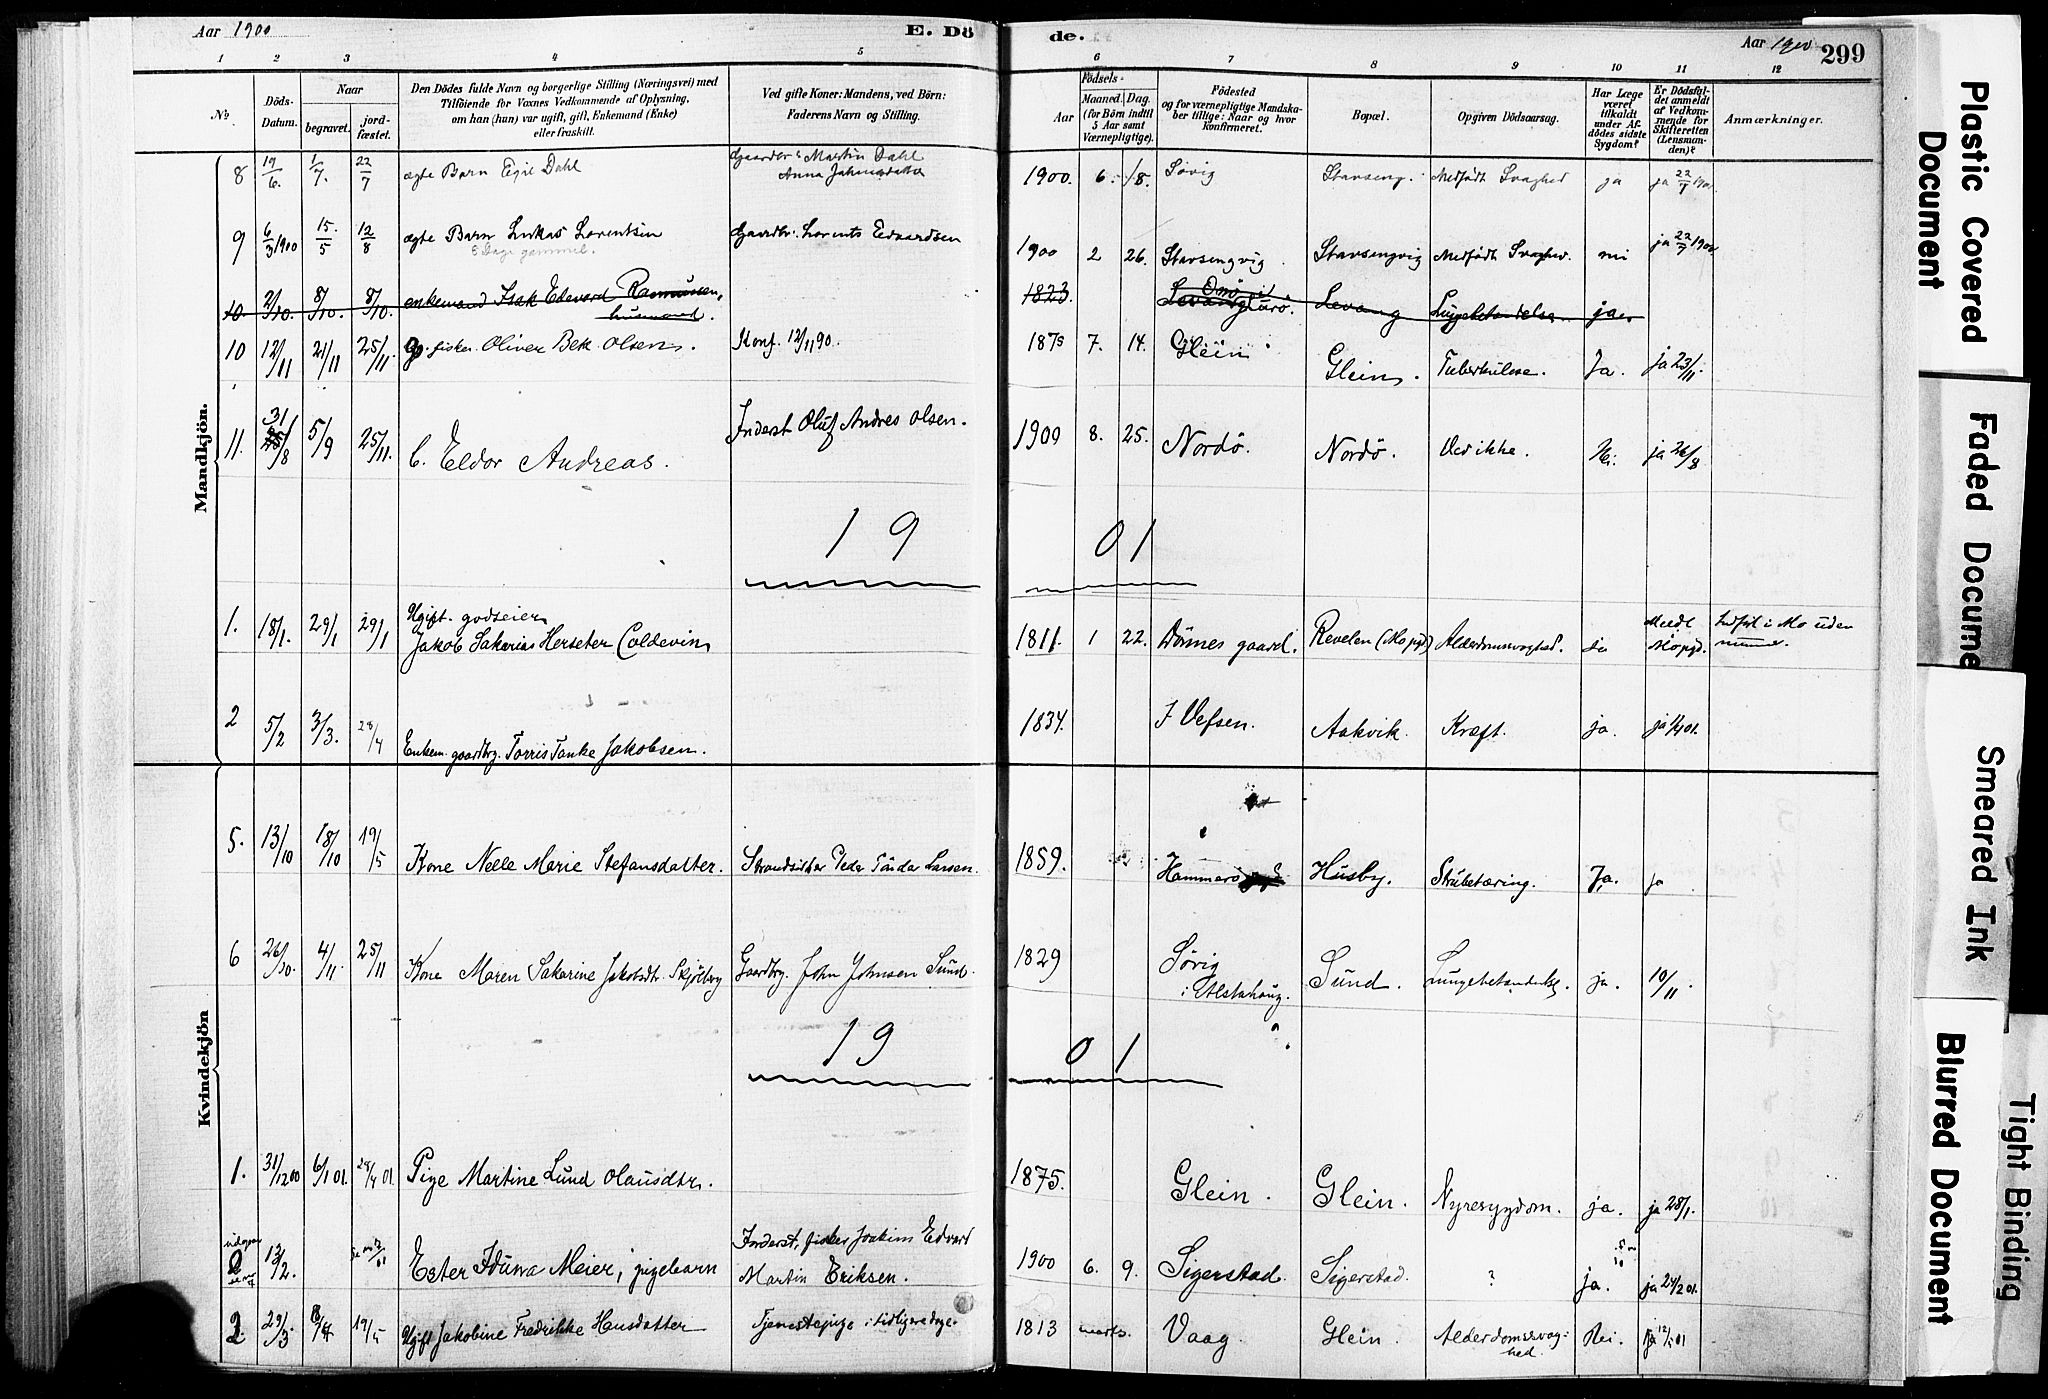 Aar 1900
E. Dö
de.
Aar 1900
299
1 2 3 4 5 6 7 8 9 10 11 12
No
Döds-Datum.
Naar
begravet.
jord-fæstet.
Den Dödes fulde Navn og borgerlige Stilling (Næringsvei) med
Tilföiende for Voxnes Vedkommende af Oplysning,
om han (hun) var ugift, gift, Enkemand (Enke)
eller fraskilt.
Ved gifte Koner: Mandens, ved Börn:
Faderens Navn og Stilling.
Födsels-
Aar
Maaned. Dag.
(for Börn indtil
5 Aar samt
Værnepligtige).
Födested
og for værnepligtige Mandska-
ber tillige: Naar og hvor
konfirmeret.
Bopæl.
Opgiven Dödsaarsag.
Har Læge
været
tilkaldt
under Af-
dödes sidste
Sygdom?
Er Dödsfal-
det anmeldt
af Vedkom-
mende for
Skifteretten
(Lensman-
den)?
Anmærkninger.
Mandkjön.
8 19/6. 1/7. 22/7 ægte Barn Egil Dahl Gaardbr: Martin Dahl 1900. 6. 18. Søvig Stavseng. Medfødt Svaghed ja ja 22/7 1900
Anna
9 6/3 1900 15/5 12/8 ægte Barn Lukas Lorentsen Gaardbr: Lorents Edvardsen 1900 2 26. Stavsengvig Stavsengvig Medfødt Svaghed. nei ja 22/7 1900
8 Dage gammel.
10. 2/10. 8/10. 8/10. enkemand Isak Edvard Rasmussen, 1823. Levang Lungebetændelse ja.
husmand.
10 12/11 21/11 25/11. fisker Oliver Bek Olsen. Konf. 12/11 90. 1875 7. 14. Glein Glein. Tuberkulose. Ja. ja 23/11.
11. 31/8 5/9 25/11. C. Eldor Andreas. Inderst Oluf Andres Olsen. 1900 8. 25. Nordø. Nordø. Ved ikke. Nei. ja 26/8
19 01
1. 18/1. 29/1 29/1 Ugift godseier
Jakob Sakarias Herseter Coldevin 1811. 1 22. Dønnes gaard. Revelen (Mo pgd) Alderdomssvaghed. ja Meldt Mo pgd. Indført i Mo uden
2 5/2 3/3. 28/4 Enkem. gaardbrg. Torris Tanke Jakobsen. 1834. I Vefsen. Aakvik. Kræft. ja. ja 1/4 01.
Kvindekjön
5. 13/10 18/10 19/5 Kone Nelle Marie Stefansdatter. Strandsidder Peder Tinder Larsen. 1859. Hammerø Husby. Strubetæring. Ja. ja
6 26/10. 4/11. 25/11 Kone Maren Sakarine Jakobsdtr. Skjelberg Gaardbrg. John Johnsen Sund. 1829 Søvig
i Alstahaug. Sund. Lungebetændelse. ja. 10/11.
19 01
1. 31/12 00 6/1 01. 28/4 01 Pige Martine Lund Olausdtr. 1875. Glein. Glein. Nyresygdom. ja. ja 28/1.
2 13/2. Ester Iduna Meier, pigebarn Inderst, fisker Joakim Edvard
Martin Eriksen. 1900 6. 9. Sigerstad. Sigerstad. ? ja. ja 24/2 01.
2. 29/3. 8/4 19/5 Ugift Jakobine Fredrikke Hansdatter Tjenestepige i tidligere dage. 1813 marts. Vaag. Glein. Alderdomssvag-
hed. Nei. ja 12/4 01
Plastic Covered
Document
Faded Docume
Smeared Ink
Blurred Document
Tight Binding